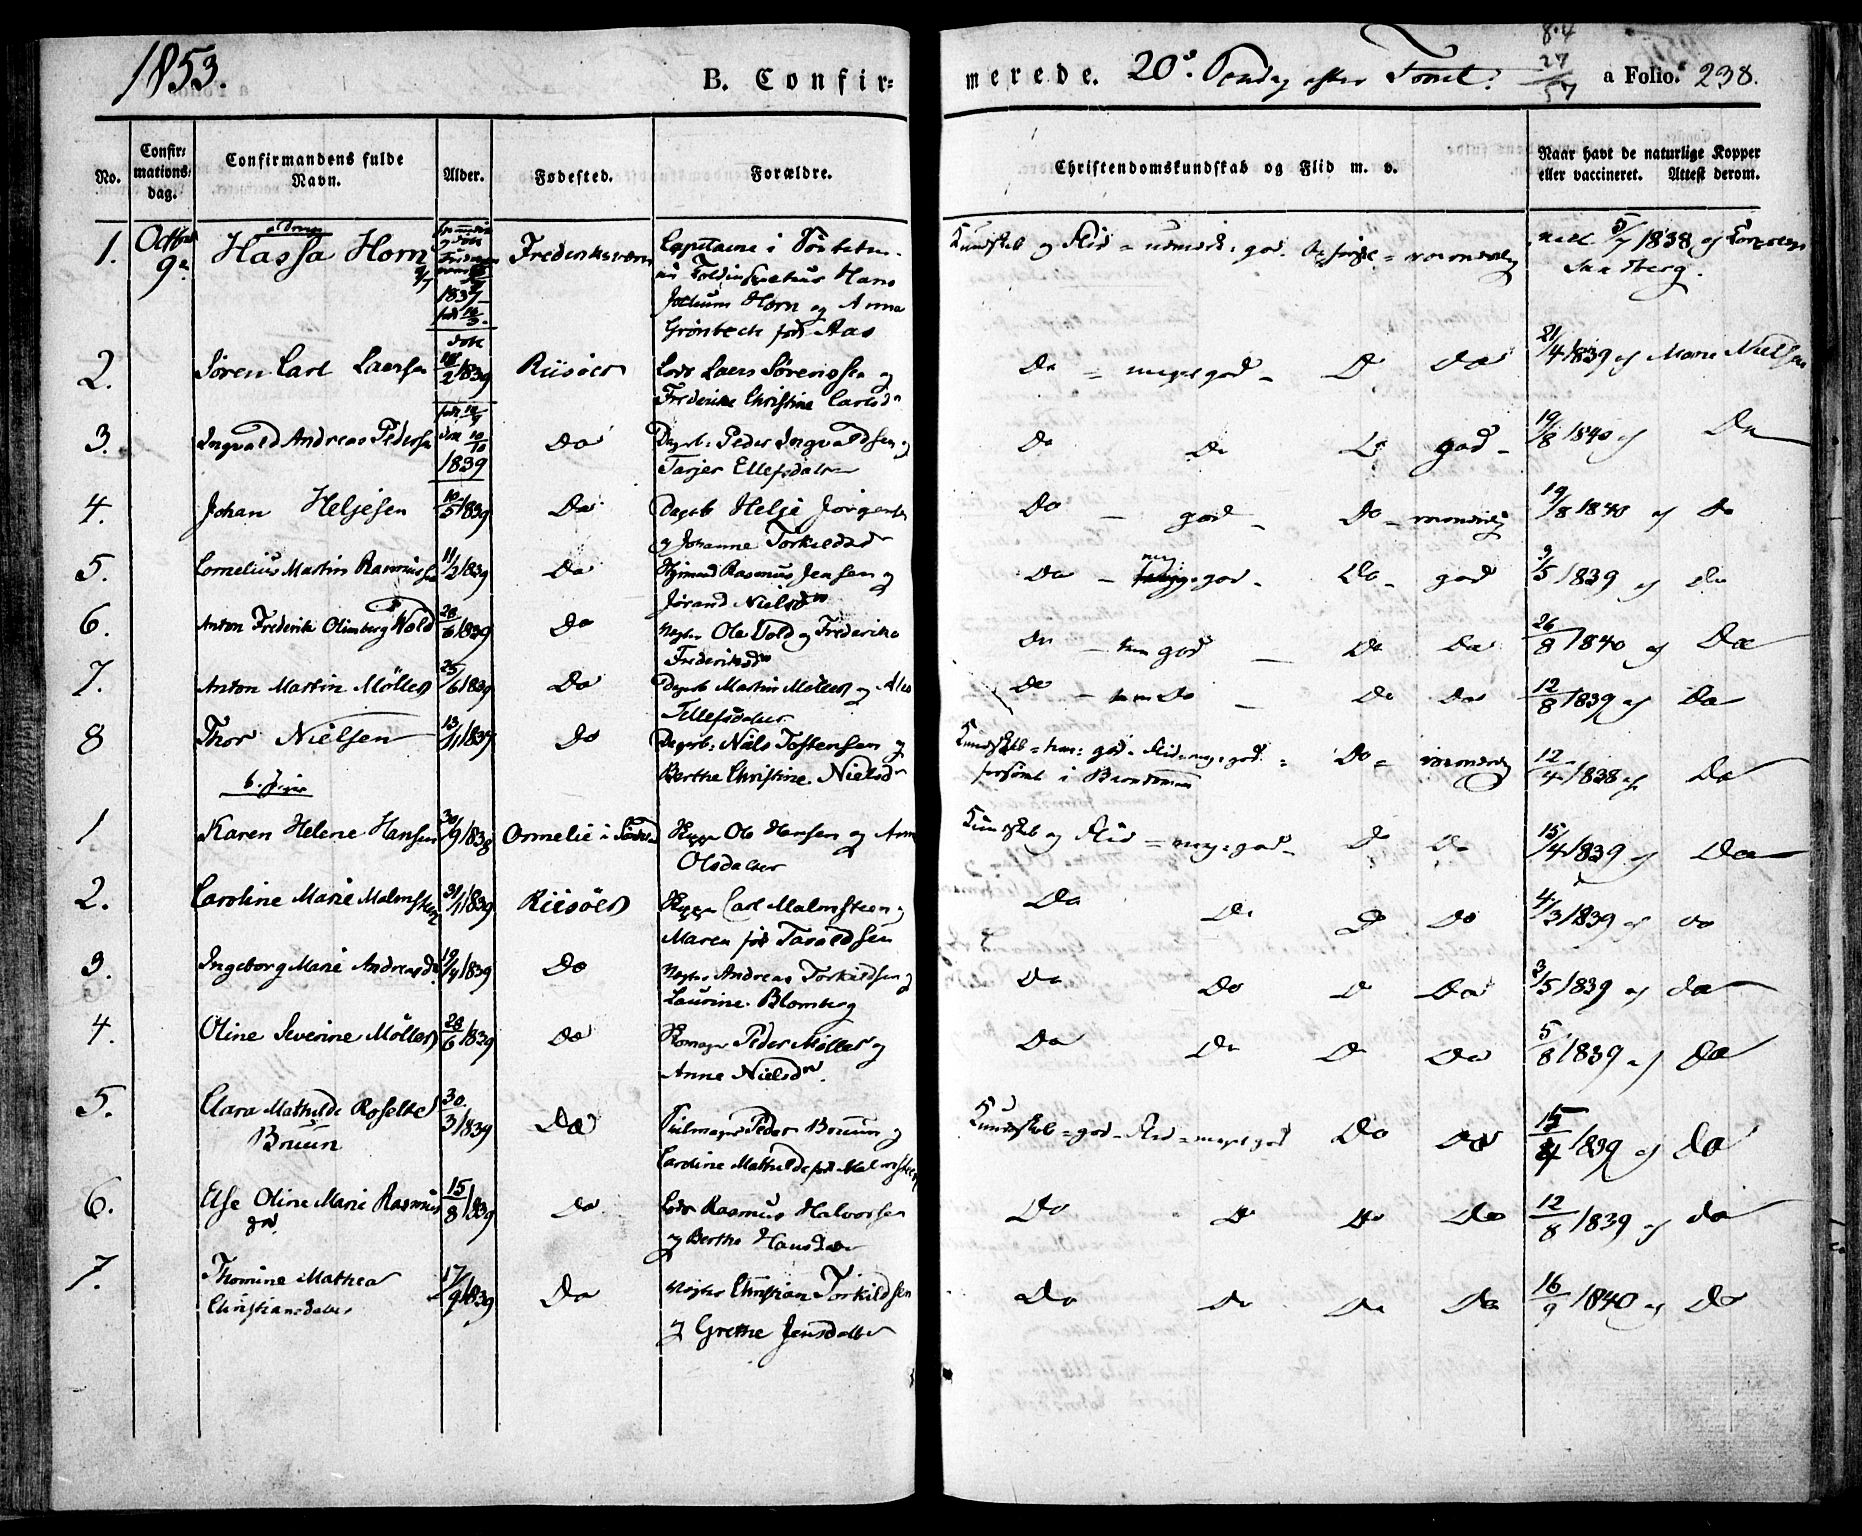 1853.
B. Confir-
merede. 20de Søndag efter Trinit: a Folio. 238.
8.4
27
57
No.
Confir-
mations-
dag.
Confirmandens fulde
Navn.
Alder.
Fødested.
Forældre.
Christendomskundskab og Flid m. v.
Naar havt de naturlige Kopper
eller vaccineret. Attest derom.
1. Octbr 9de
a. Drenge
Hassa Horn
1837
Frederiksværn
Capitaine i
Toldinspecteur Hans
Jochum Horn og Anna
Grønbech født Aas
Kundskab og Flid = udmærk: god. Opførsel = 
5/7 1838 af
Sandberg.
2. Søren Carl Laersen 2/1839 Riisøer Lods Laers Sørenssen og
Frederikke Christine Carlsd
Do = meget god - Do Do 21/4 1839 af Marie Nielsen
3. Ingvald Andreas Pedersen 1839 Do Dagarb: Peder Ingvaldsen og
Tarjer Ellefsdatter
Do Do Do god - 19/8 1840 af Do
4. Johan Heljesen 10/5 1839 Do Dagarb Helje Jørgensen
og Johanne Torkildsd
Do - god - Do - 19/8 1840 af Do
5. Cornelius Martin Rasmussen 11/2 1839 Do Styrmand Rasmus Jensen og
Jørand Nielsd
Do - meg god - Do - god 3/5 1839 af do
6. Anton Frederik Olimberg Wold 28/6 1839 Do Ole Wold og Frederikke
Frederiksd
Do - tem god - Do Do 26/8 1840 af Do
7. Anton Martin Møller 25/6 1839 Do Dagarb Martin Møller og
Tellefsdatter
Do - tem Do - Do Do 12/8 1839 af Do
8 Thor Nielsen 13/11 1837 Do Dagarb: Niels Tostensen og
Berthe Christine Nielsd
Kundskab = tem: god - Flid = meg: god = Do =
forsømt i Barndommen
12/4 1838 af Do
b. Piger
1. Karen Helene Hansen 30/9 1838 Ormelie i Ole Hansen og Anne
Olsdatter
Kundskab og Flid = meget god - Do Do 15/4 1839 af Do
2. Caroline Marie Malmsteen 31/1 1839 Riisøer Carl Malmsteen og
Maren født Taraldsen
Do Do Do Do 4/3 1839 af Do
3. Ingeborg Marie Andreasd 19/4 1839 Do Andreas Torkildsen og
Laurine Blomberg
Do Do Do Do 3/5 1839 af do
4. Oline Severine Møller 28/6 1839 Do Peder Møller og
Anne Nielsd
Do Do Do Do 5/8 1839 af Do
5. Clara Mathilde Roselte
Bruun
30/3 1839 Do Peder Bruun og
Caroline Mathilde født Malmsteen
Kundskab = god - Flid = meget god Do Do 15/4 1839 af do
6. Else Oline Marie Rasmus
sd
15/8 1839 Do Lods Rasmus Halvorsen
og Berthe Hansdatter
Do Do Do Do 12/8 1839 af do
7. Thomine Mathea
Christiansdatter
17/9 1839 Do Christian Torkildsen
og Grethe Jensdatter
Do Do Do Do 16/9 1840 af Do